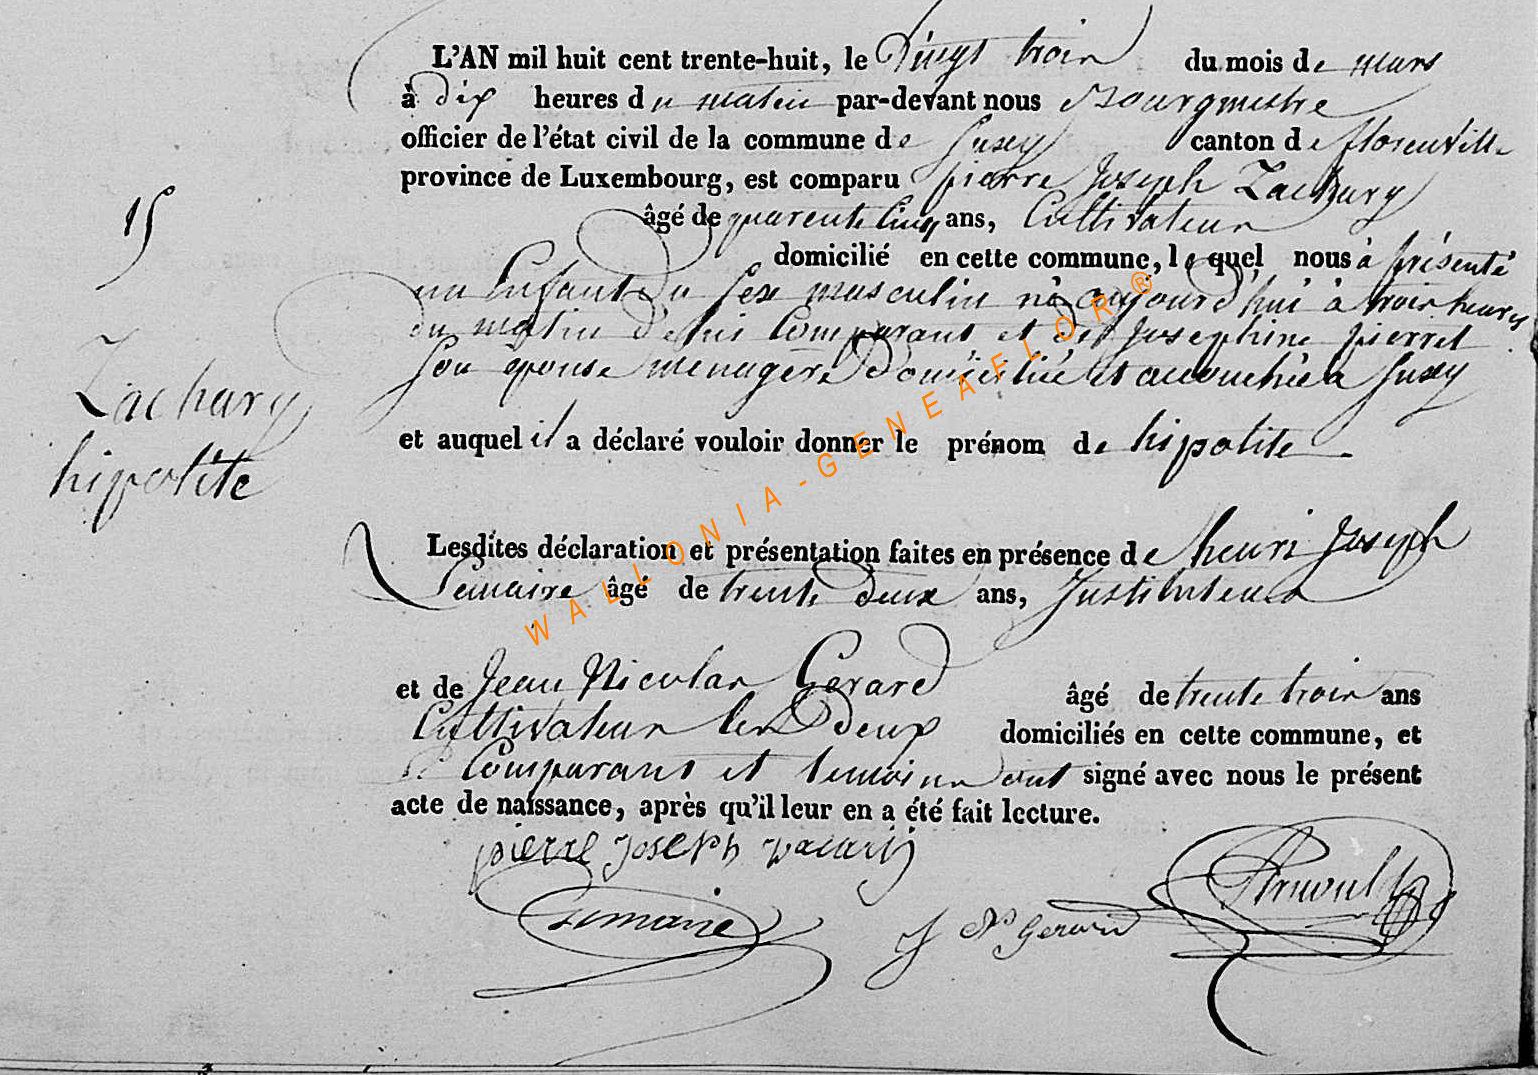 L'AN mil huit cent trente-huit, le vingt trois du mois de mars
à dix heures du matin par-devant nous Bourgmestre
officier de l'état civil de la commune de Suxy canton de florenville
province de Luxembourg, est comparu pierre Joseph Zachary
15
âgé de quarente cinq ans, Cultivateur
domicilié en cette commune, lequel nous à présenté
un Enfant du sexe masculin né aujourd'hui à trois heures
du matin de lui Comparant et de Josephine pierret
Son épouse menagère Domiciliée et accouchée à Suxy
Zachary
hipolite
et auquel il a déclaré vouloir donner le prénom de hipolite
Lesdites déclaration et présentation faites en présence de henri Joseph
Lemaire âgé de trente deux ans, Instituteur
et de Jean Nicolas Gerard âgé de trente trois ans
Cultivateur les deux domiciliés en cette commune, et
le Comparant et temoins ont signé avec nous le présent
acte de naissance, après qu'il leur en a été fait lecture.
pierre Joseph zacary
Lemaire
J Ns Gerard
WALLONIA-GENEAFLOR®